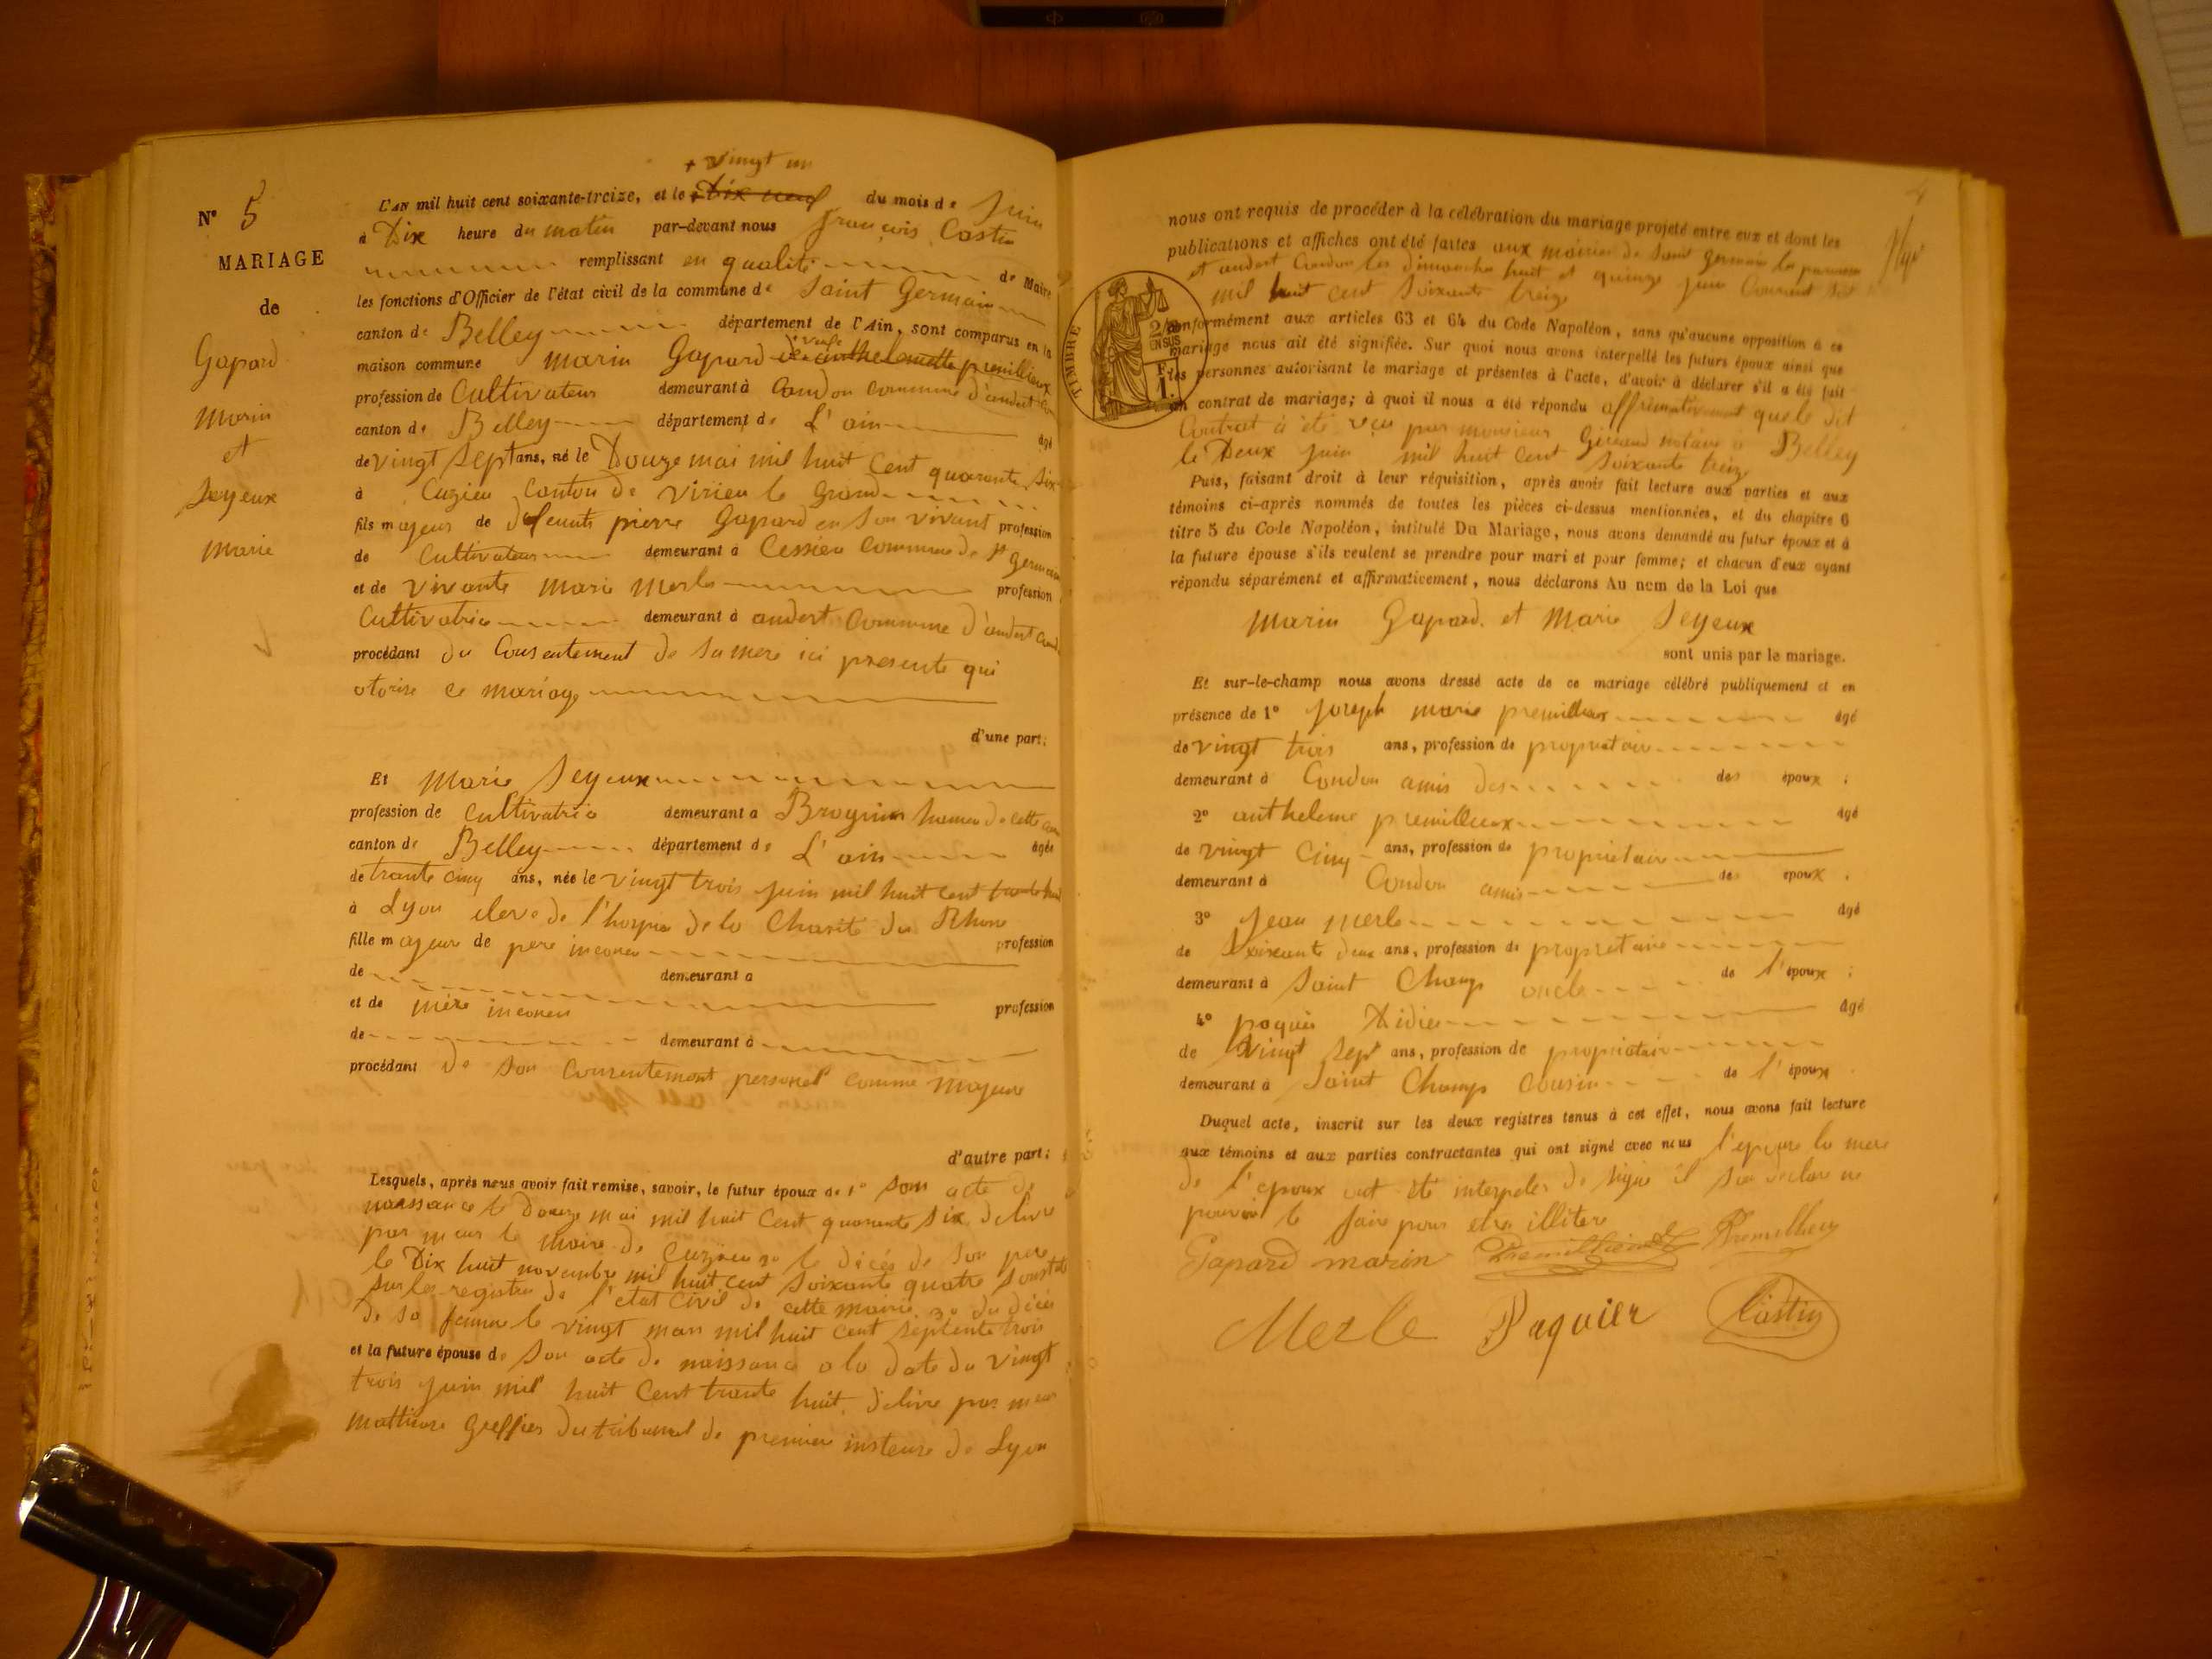 N° 5
MARIAGE
de
Gapard
Marin
et
Seyeux
Marie
+ Vingt un
L'AN mil huit cent soixante-treize, et le + Dix neuf du mois de Juin
à Dix heure du matin par-devant nous françois Castin
remplissant en qualité de Maire
les fonctions d'Officier de l'état civil de la commune de Saint Germain
canton de Belley département de l'Ain, sont comparus en la
maison commune Marin Gapard veuf de anthelmette premillieux
profession de Cultivateur demeurant à Condon commune d'andert con
canton de Belley département de L'ain âgé
de vingt Sept ans, né le Douze mai mil huit Cent quarante Six
à Cuzieu Canton de Virieu le Grand
fils majeur de defeunts pierre Gapard en Son vivant profession
de Cultivateur demeurant à Cessieu Commune de St Germain
et de vivante Marie Merle profession
Cultivatrice demeurant à andert Commune d'andert Cond
procédant du Consentement de Sa mere ici presente qui
otorise ce mariage
d'une part;
Et Marie Seyeux
profession de Cultivatrice demeurant a Brognin hameau de cette com
canton de Belley département de L'ain âgée
de trante cinq ans, née le vingt trois juin mil huit Cent trante huit
à Lyon eleve de l'hospice de la Charité du Rhone
fille majeure de pere inconeu profession
de demeurant a
et de mère inconeu profession
de demeurant à
procédant de Son Consentement personel comme Majeure
d'autre part;
Lesquels, après nous avoir fait remise, savoir, le futur époux de 1° Son acte de
naissance le Douze mai mil huit Cent quarante Six delivré
par le Maire de Cuzieu 2° le décès de Son pere
le Dix huit novembre mil huit cent Soixante quatre
sur les registres de l'etat Civil de cette Mairie 3° du décès
de Sa femme le vingt mars mil huit cent Septente trois
et la future épouse de Son acte de naissance a la Date du Vingt
trois juin mil huit Cent trante huit, delivré par
Greffier du tribunal de premiere insteuse de Lyon
4
nous ont requis de procéder à la célébration du mariage projeté entre eux et dont les
publications et affiches ont été faites aux mairies de Saint Germain les paroisses
et andert Condon les Dimanches huit et quinze juin Courant
mil huit cent Soixante treize
TIMBRE
2/10 EN SUS
F. 1.
conformément aux articles 63 et 64 du Code Napoléon, sans qu'aucune opposition à ce
mariage nous ait été signifiée. Sur quoi nous avons interpellé les futurs époux ainsi que
les personnes autorisant le mariage et présentes à l'acte, d'avoir à déclarer s'il a été fait
un contrat de mariage; à quoi il nous a été répondu affirmativement que le dit
Contrat à été reçu par monsieur notaire à Belley
le Deux juin mil huit Cent Soixante treize
Puis, faisant droit à leur réquisition, après avoir fait lecture aux parties et aux
témoins ci-après nommés de toutes les pièces ci-dessus mentionnées, et du chapitre 6
titre 5 du Code Napoléon, intitulé Du Mariage, nous avons demandé au futur époux et à
la future épouse s'ils veulent se prendre pour mari et pour femme; et chacun d'eux ayant
répondu séparément et affirmativement, nous déclarons Au nom de la Loi que
Marin Gapard et Marie Seyeux
sont unis par le mariage.
Et sur-le-champ nous avons dressé acte de ce mariage célébré publiquement et en
présence de 1° Joseph marie premillieux âgé
de vingt trois ans, profession de propriétaire
demeurant à Condon amis des des époux;
2° anthelme premillieux âgé
de vingt Cinq ans, profession de propriétaire
demeurant à Condon amis des époux.
3° Jean Merle âgé
de Soixante deux ans, profession de propriétaire
demeurant à Saint Champ oncle de l'époux;
4° paquier Didier âgé
de Vingt Sept ans, profession de propriétaire
demeurant à Saint Champ Cousin de l'époux.
Duquel acte, inscrit sur les deux registres tenus à cet effet, nous avons fait lecture
aux témoins et aux parties contractantes qui ont signé avec nous l'épouse la mere
de l'epoux ont été interpelés de signé il son declaré ne
pouvoir le faire pour etre illitéré
Gapard marin Premillieux Premillieux
Merle Paquier Castin